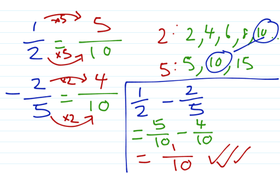 ×5
1/2 = 5/10
×5
×2
- 2/5 = 4/10
×2
2: 2, 4, 6, 8, 10
5: 5, 10, 15
1/2 - 2/5
= 5/10 - 4/10
= 1/10 ✓✓✓